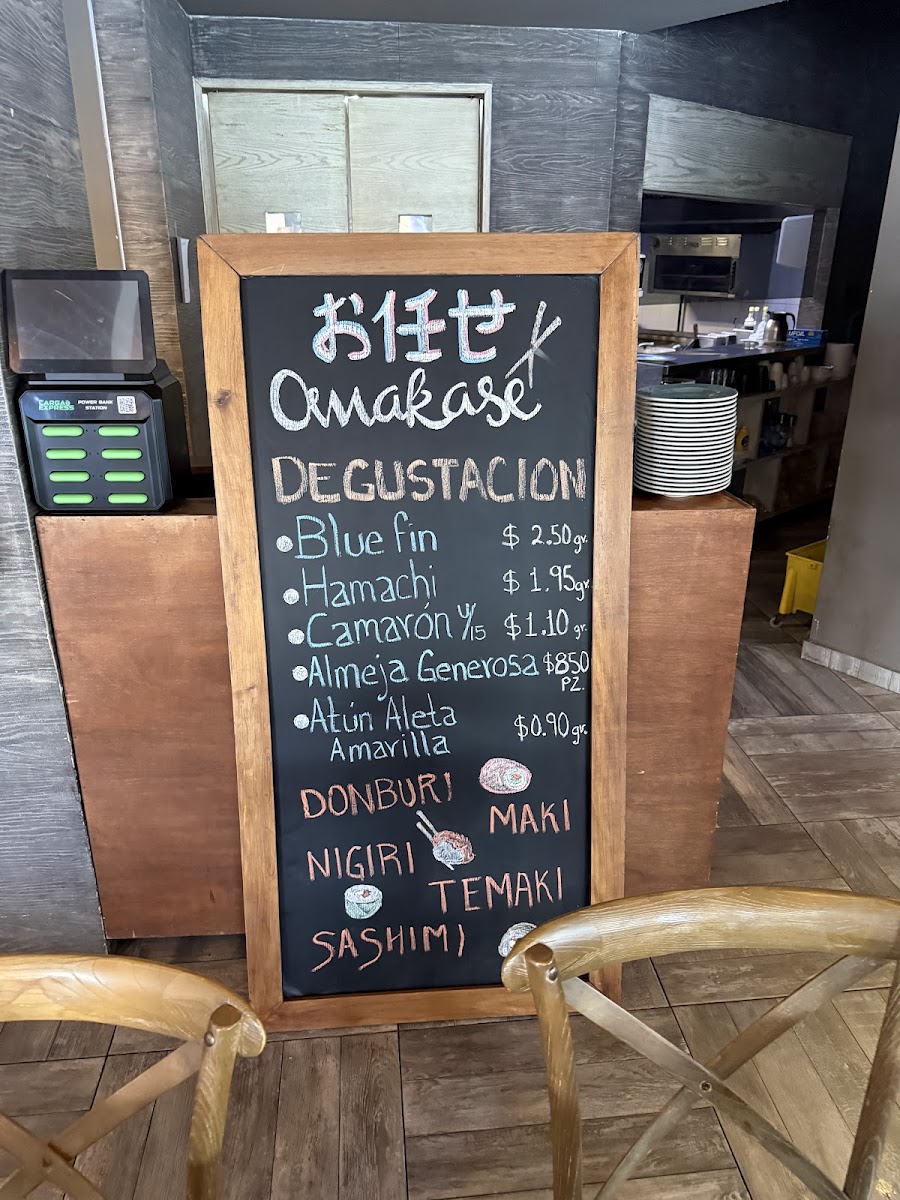 お任せ
Omakase
DEGUSTACION
Blue fin $ 2.50 gr.
Hamachi $ 1.95 gr.
Camarón U/15 $1.10 gr.
Almeja Generosa $850
PZ.
Atún Aleta $0.90 gr.
Amarilla
DONBURI
MAKI
NIGIRI
TEMAKI
SASHIMI
CARGA
EXPRESS
POWER BANK
STATION